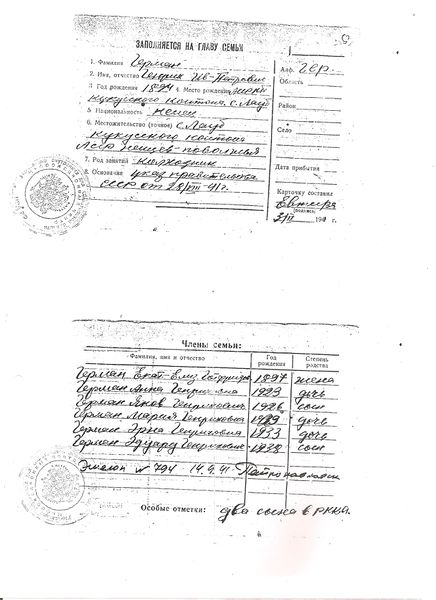 ЗАПОЛНЯЕТСЯ НА ГЛАВУ СЕМЬИ
1. Фамилия Герман
2. Имя, отчество Генрих Ив-Петрович
3 Год рождения 1894 4. Место рождения
кукусского кантона с. Лауб
5. Национальность немец
6. Местожительство (точное) с. Лауб
кукусского кантона
АССР немцев-поволжья
7. Род занятий колхозник
8. Основания указ правительства
СССР от 28/VIII-41 г.
Алф. Гер.
Область
Район
Село
Дата прибытия
Карточку составил
(подпись)
194 г.
Члены семьи:
Фамилия, имя и отчество Год рождения Степень родства
Герман Екат-Елиз 1897 жена
Герман Анна Генриховна 1923 дочь
Герман Яков Генрихович 1926 сын
Герман Мария Генриховна 1929 дочь
Герман Эрна Генриховна 1933 дочь
Герман Эдуард Генрихович 1938 сын
Эшелон № 794 14.9.41 Петропавловск
Особые отметки: два сына в РККА.